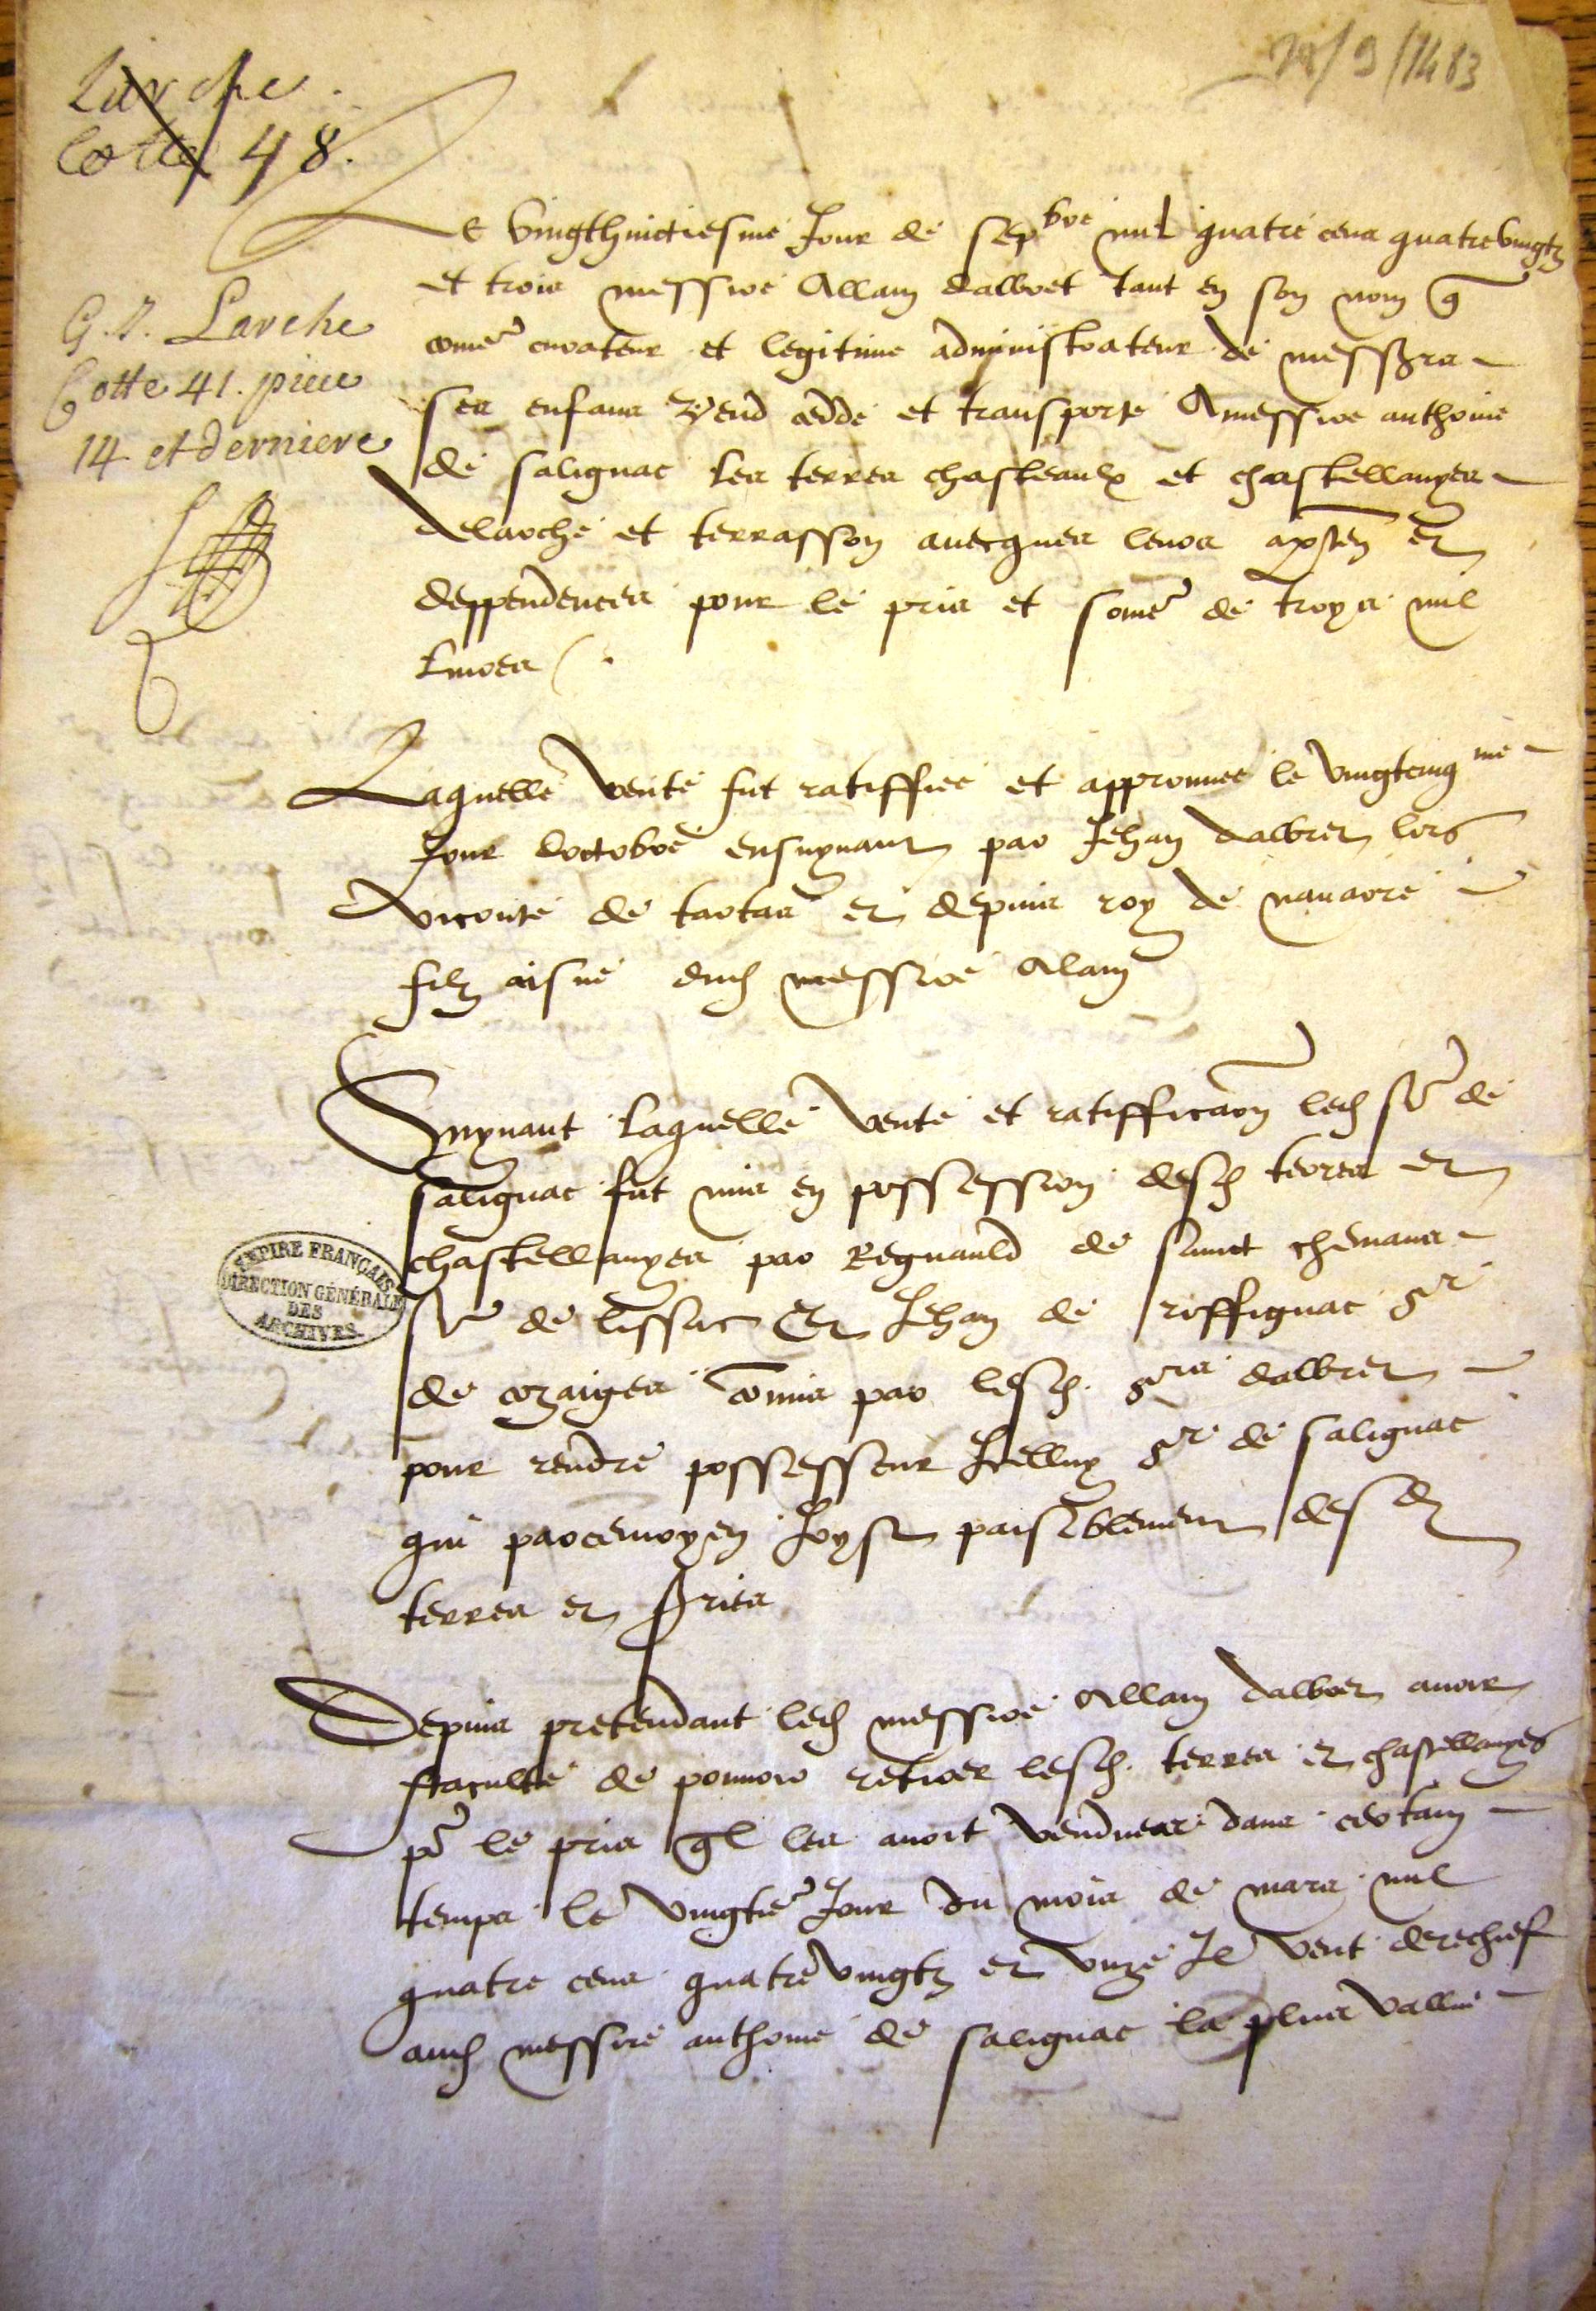 28/9/1483
Larche
Cotte 48.
G. I. Larche
Cotte 41. piece
14 et derniere
Le vingthuictiesme Jour de sepbre mil quatre cens quatrevingtz
et trois messire Allain dalbret tant en son nom q
come curateur et legitime administrateur de messrs
ses enfans vend cedde et transporte A messire anthoine
de salignac Les terres chasteaulx et chastellanyes
delarche et terrasson avecques leurs apten et
deppendences pour le pris et some de troys mil
Livres
Laquelle vente fut ratiffiee et approuvee le vingtcinqme
Jour doctobre ensuyvant par Jehan dalbret lors
viconte de tartas et depuis roy de navarre
filz aisne dud messire Alain
Suyvant Laquelle vente et ratifficaon led sr de
salignac fut mis en possession desd terres et
chastellanyes par Regnauld de sainct chamans
sr de Lissac Et Jehan de roffignac sr
de cozaiges comis par lesd. srs dalbret
pour rendre possesseur Icelluy sr de salignac
qui parcemoyen Joyst paisiblement desd
terres et sries
EMPIRE FRANÇAIS
DIRECTION GÉNÉRALE
DES
ARCHIVES
Depuis pretendant led messire Allain dalbret avoir
faculte de pouvoir retirer lesd. terres et chastellanyes
pr le pris ql les avoit vendues dans certain
temps le vingtie Jour du mois de mars mil
quatre cens quatrevingtz et unze Il vent derechief
aud messire anthoine de salignac la plus vallue